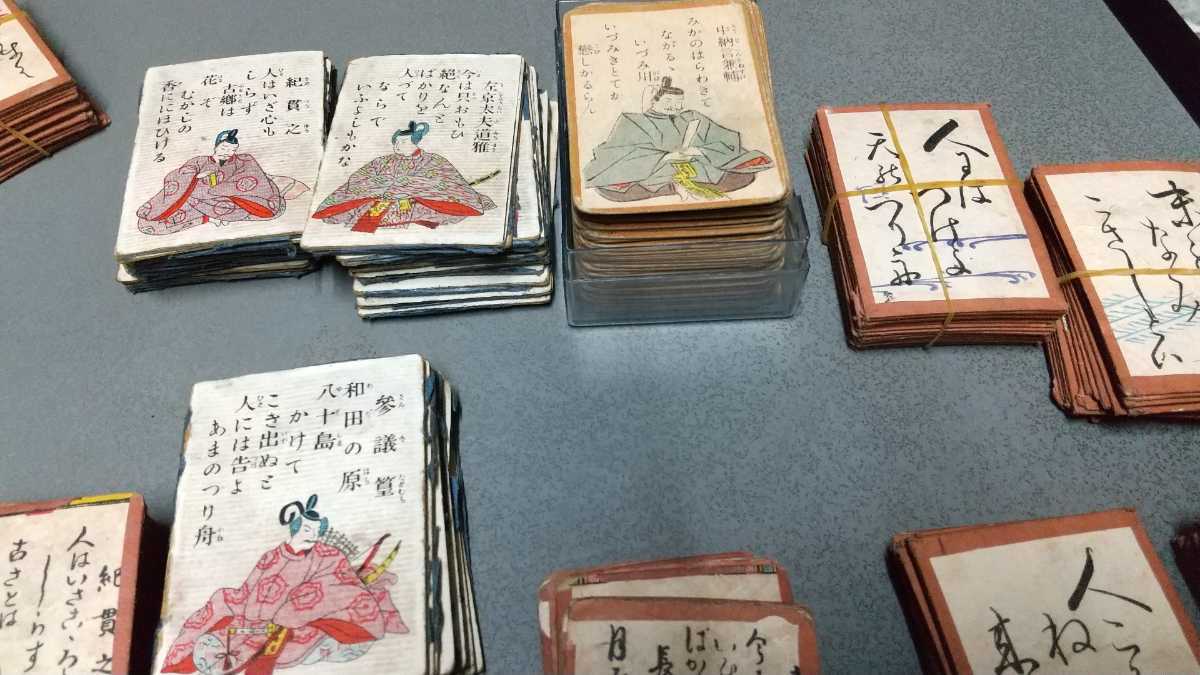 紀貫之
人はいざ心も
しらず
古鄕は
花ぞ
むかしの
香ににほひける
左京大夫道雅
今は只おもひ
絶なんと
ばかりを
人づて
ならで
いふよしもかな
中納言兼輔
みかのはらわきて
ながるゝ
いづみ川
いづみきとてか
戀しかるらん
人には
つけよ
天の
つり舟
參議篁
和田の原
八十島
かけて
こぎ出ぬと
人には告よ
あまのつり舟
紀貫之
人はいさこゝろ
しらす
古さとは
今こ
いひ
ばか
長
月
人